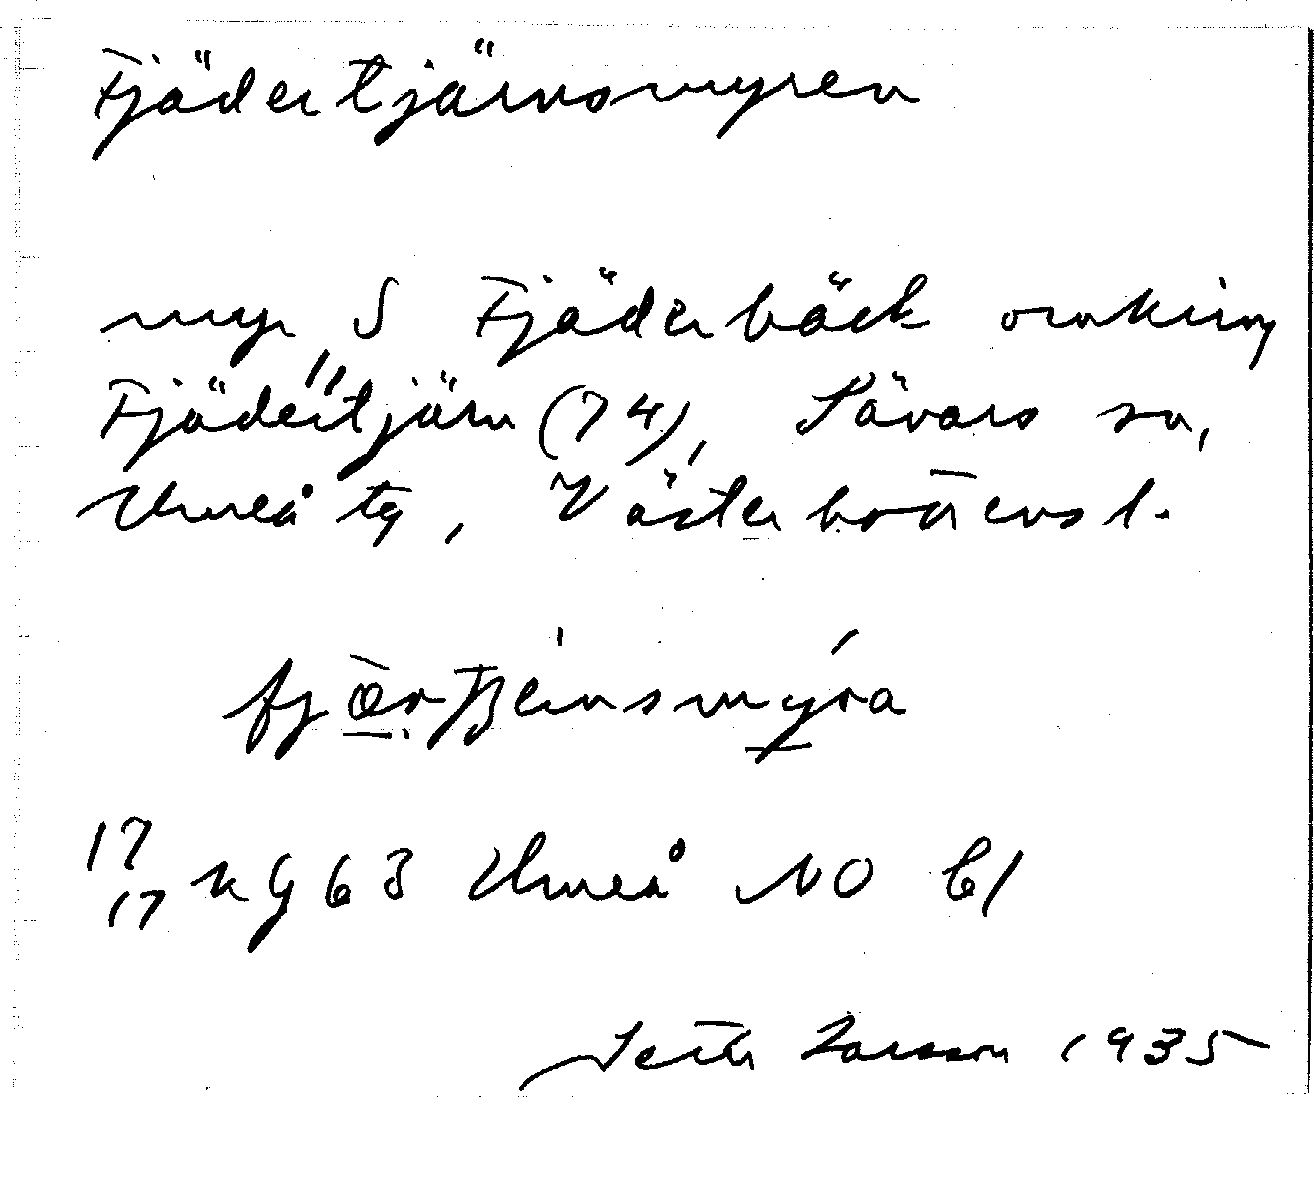 Fjädertjärnsmyren
myr S Fjäderbäck omkring
Fjädertjärn (74), Sävars sn,
Umeå tg, Västerbottens l.
17
17 kg 63 Umeå NO bl
Seth Larsson 1935